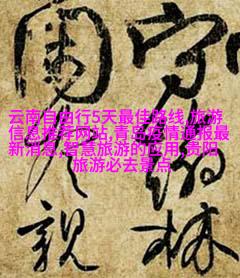 云南自由行5天最佳路线,旅游
信息推荐网站,青岛疫情通报最
新消息,智慧旅游的应用,贵阳
旅游必去景点
守林
親